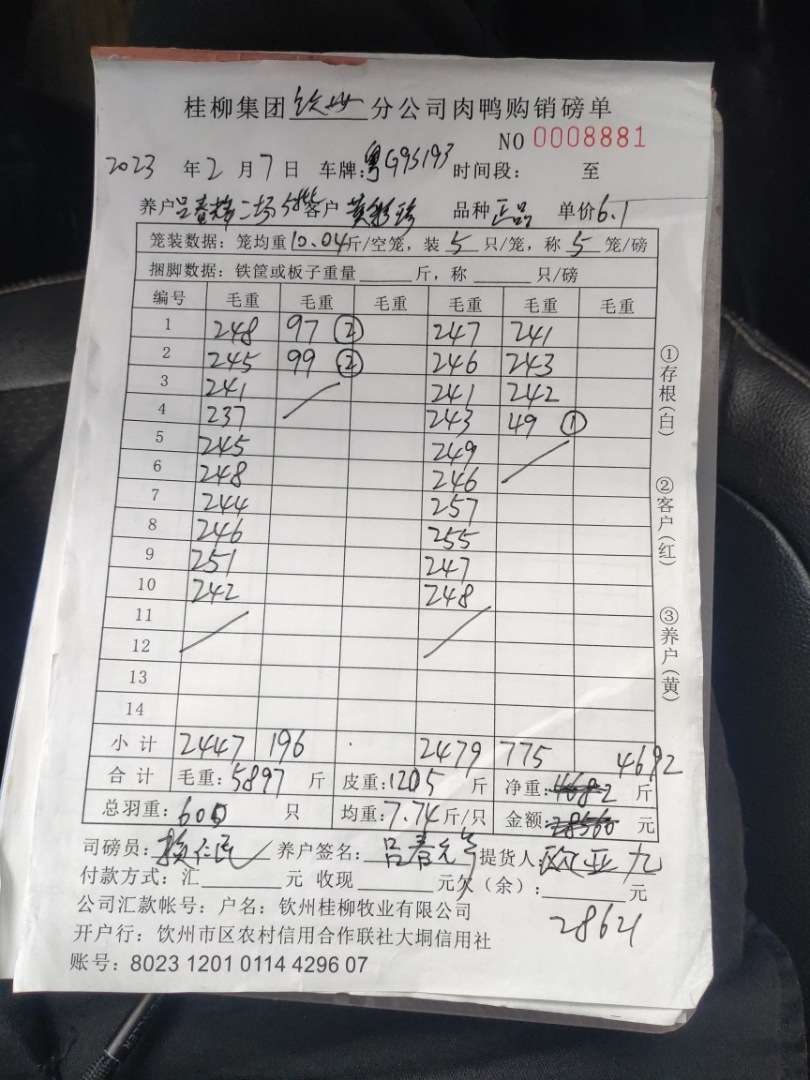 桂柳集团 钦州 分公司肉鸭购销磅单
NO 0008881
2023 年 2 月 7 日 车牌:粤G95193 时间段: 至
养户 吕春辉二场 客户 黄彩珍 品种 正品 单价 6.1
笼装数据: 笼均重 10.04 斤/空笼, 装 5 只/笼, 称 5 笼/磅
捆脚数据: 铁筐或板子重量 斤, 称 只/磅
编号 毛重 毛重 毛重 毛重 毛重 毛重
1 248 97 ② 247 241
2 245 99 ② 246 243
3 241 241 242
4 237 243 49 ①
5 245 249
6 248 246
7 244 257
8 246 255
9 251 247
10 242 248
11
12
13
14
小计 2447 196 2479 775 4692
合计 毛重: 5897 斤 皮重: 1205 斤 净重: 斤
总羽重: 600 只 均重: 7.74 斤/只 金额: 元
司磅员: 养户签名: 吕春元 提货人: 欧亚九
付款方式: 汇 元 收现 元欠(余): 元
28621
公司汇款帐号: 户名: 钦州桂柳牧业有限公司
开户行: 钦州市区农村信用合作联社大垌信用社
账号: 8023 1201 0114 4296 07
①存根(白)
②客户(红)
③养户(黄)